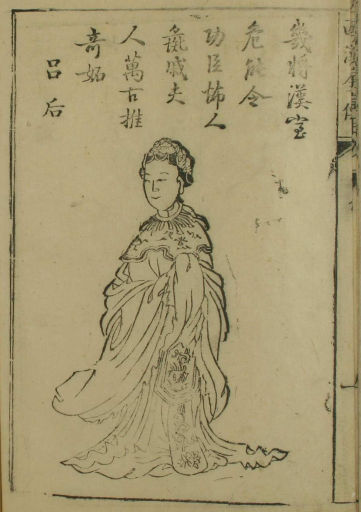 幾將漢室
危能令
功臣怖人
彘戚夫
人萬古推
奇妬
呂后